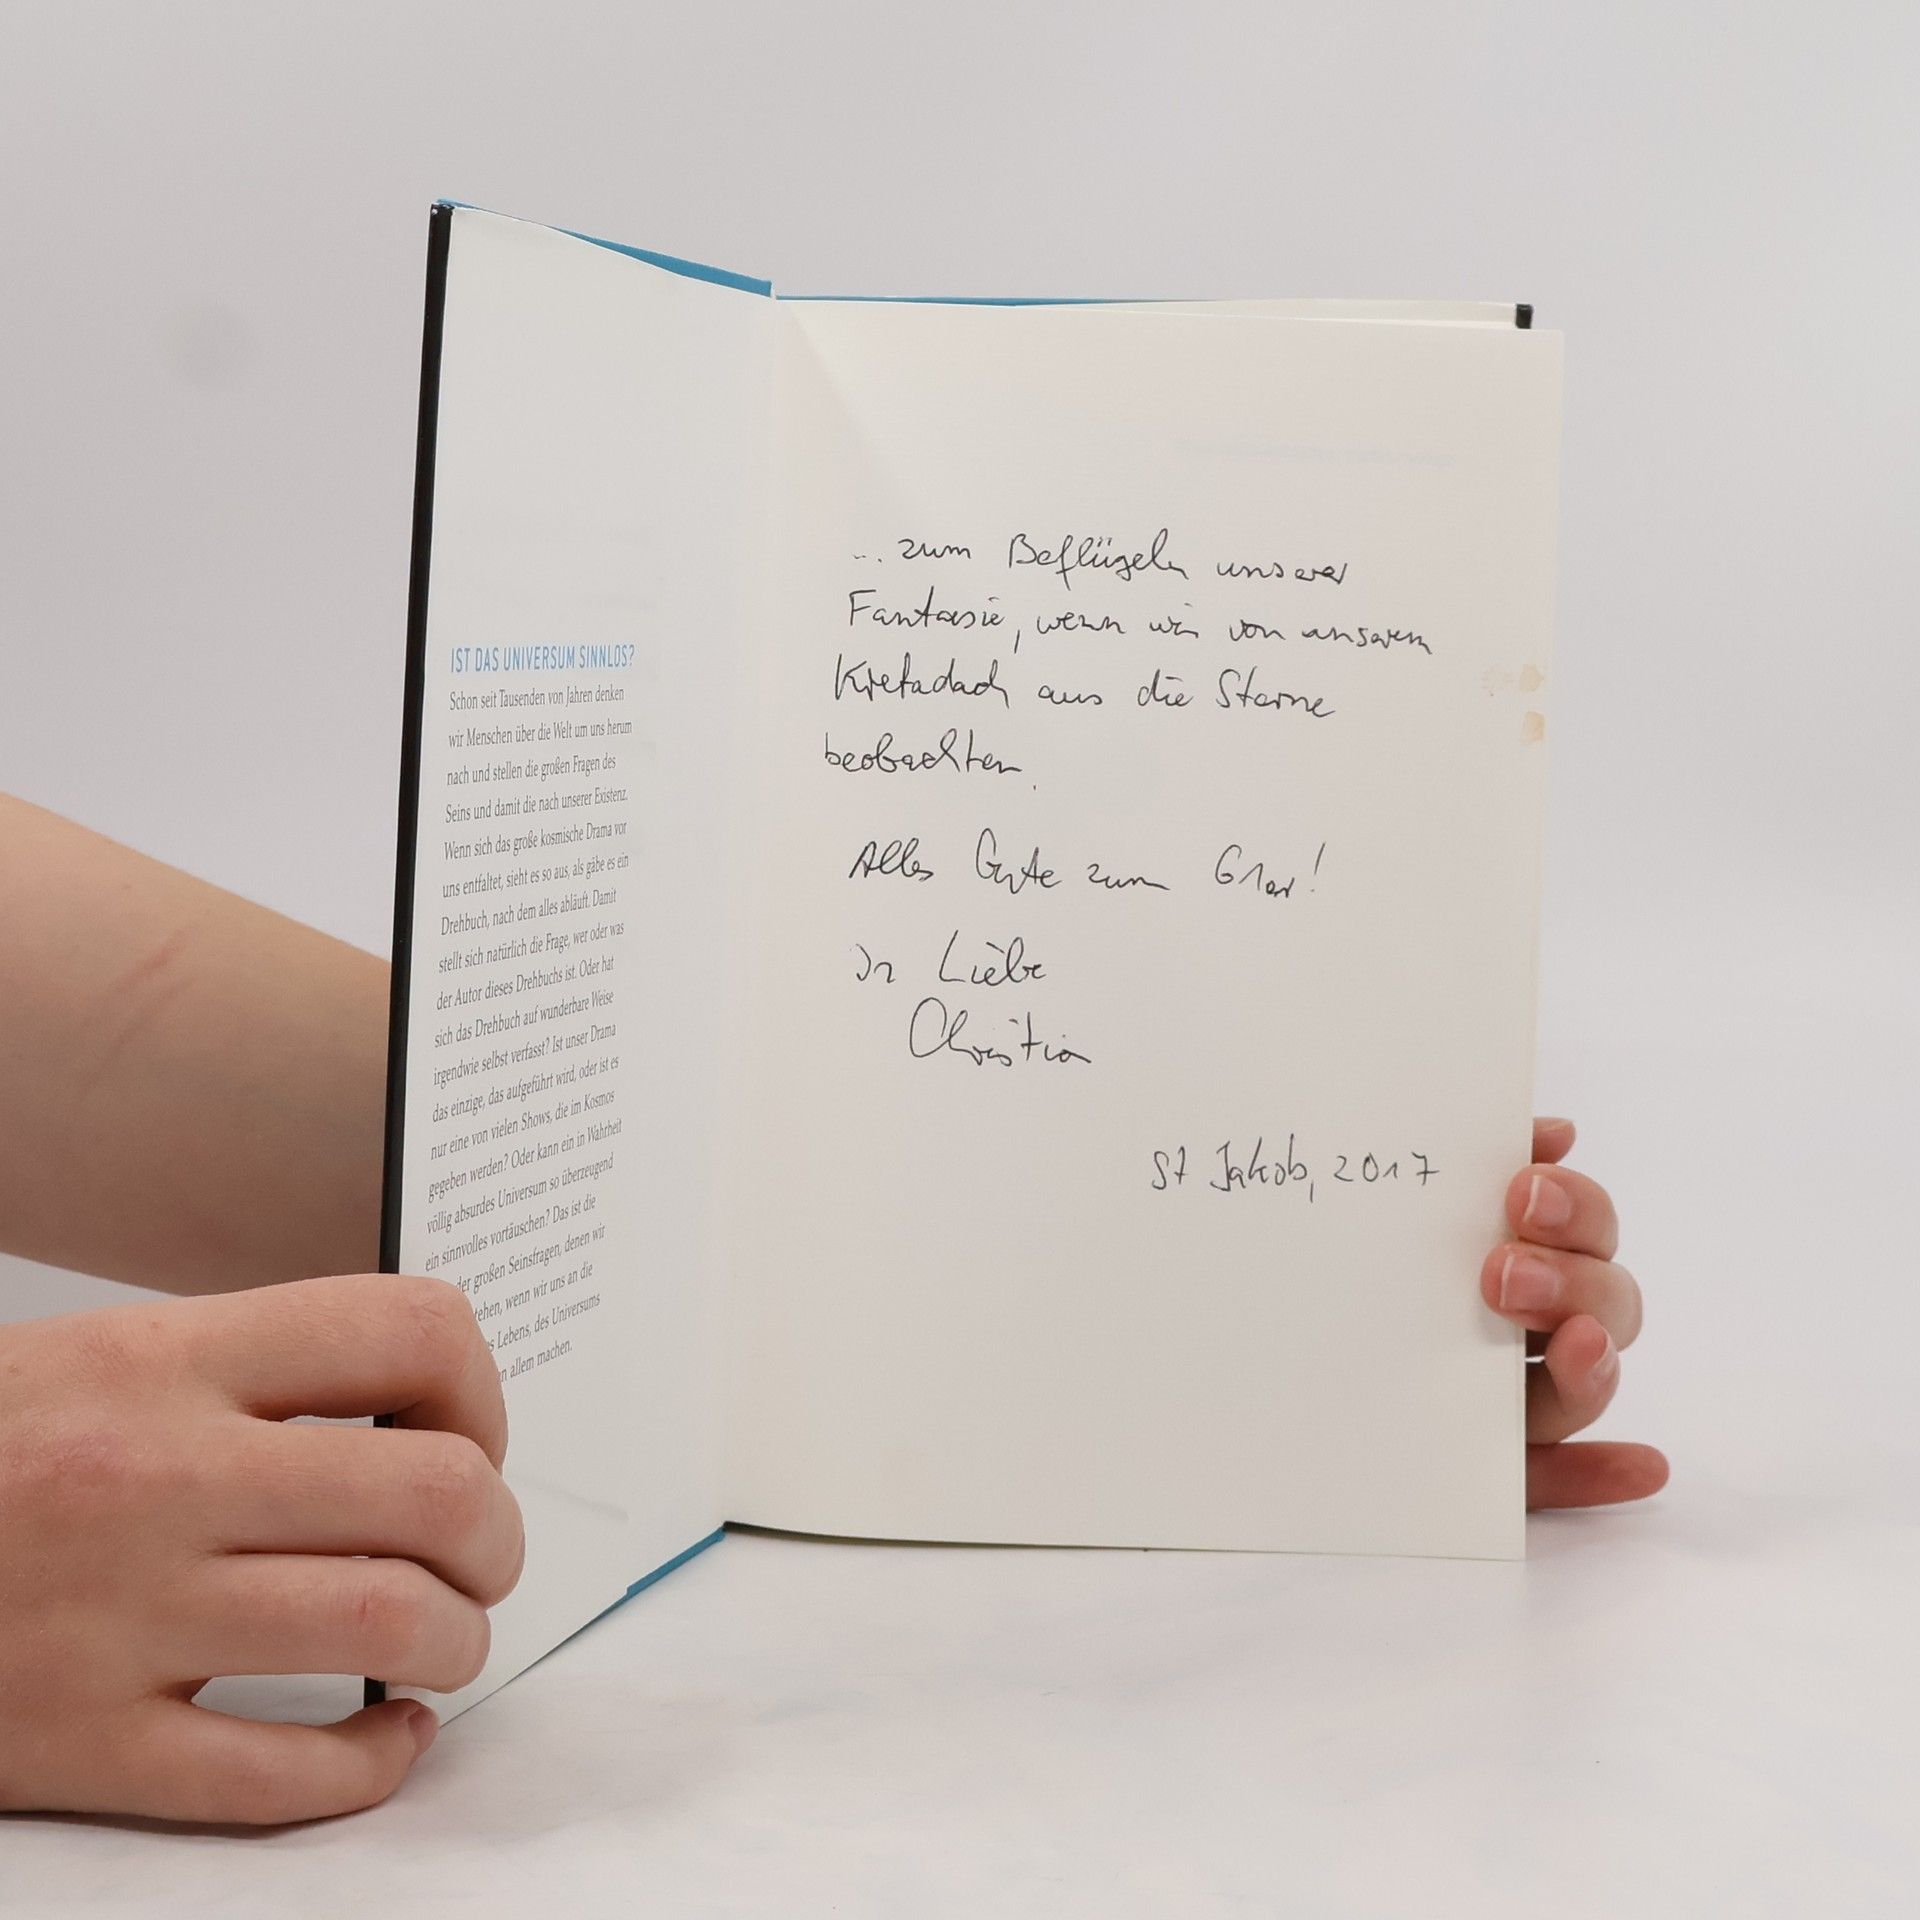 IST DAS UNIVERSUM SINNLOS?
Schon seit Tausenden von Jahren denken
wir Menschen über die Welt um uns herum
nach und stellen die großen Fragen des
Seins und damit die nach unserer Existenz.
Wenn sich das große kosmische Drama vor
uns entfaltet, sieht es so aus, als gäbe es ein
Drehbuch, nach dem alles abläuft. Damit
stellt sich natürlich die Frage, wer oder was
der Autor dieses Drehbuchs ist. Oder hat
sich das Drehbuch auf wunderbare Weise
irgendwie selbst verfasst? Ist unser Drama
das einzige, das aufgeführt wird, oder ist es
nur eine von vielen Shows, die im Kosmos
gegeben werden? Oder kann ein in Wahrheit
völlig absurdes Universum so überzeugend
ein sinnvolles vortäuschen? Das ist die
der großen Seinsfragen, denen wir
wenn wir uns an die
Lebens, des Universums
allem machen.
... zum Beflügeln unserer
Fantasie, wenn wir von unserem
Kretadach aus die Sterne
beobachten.
Alles Gute zum 61er!
In Liebe
Christian
St Jakob, 2017